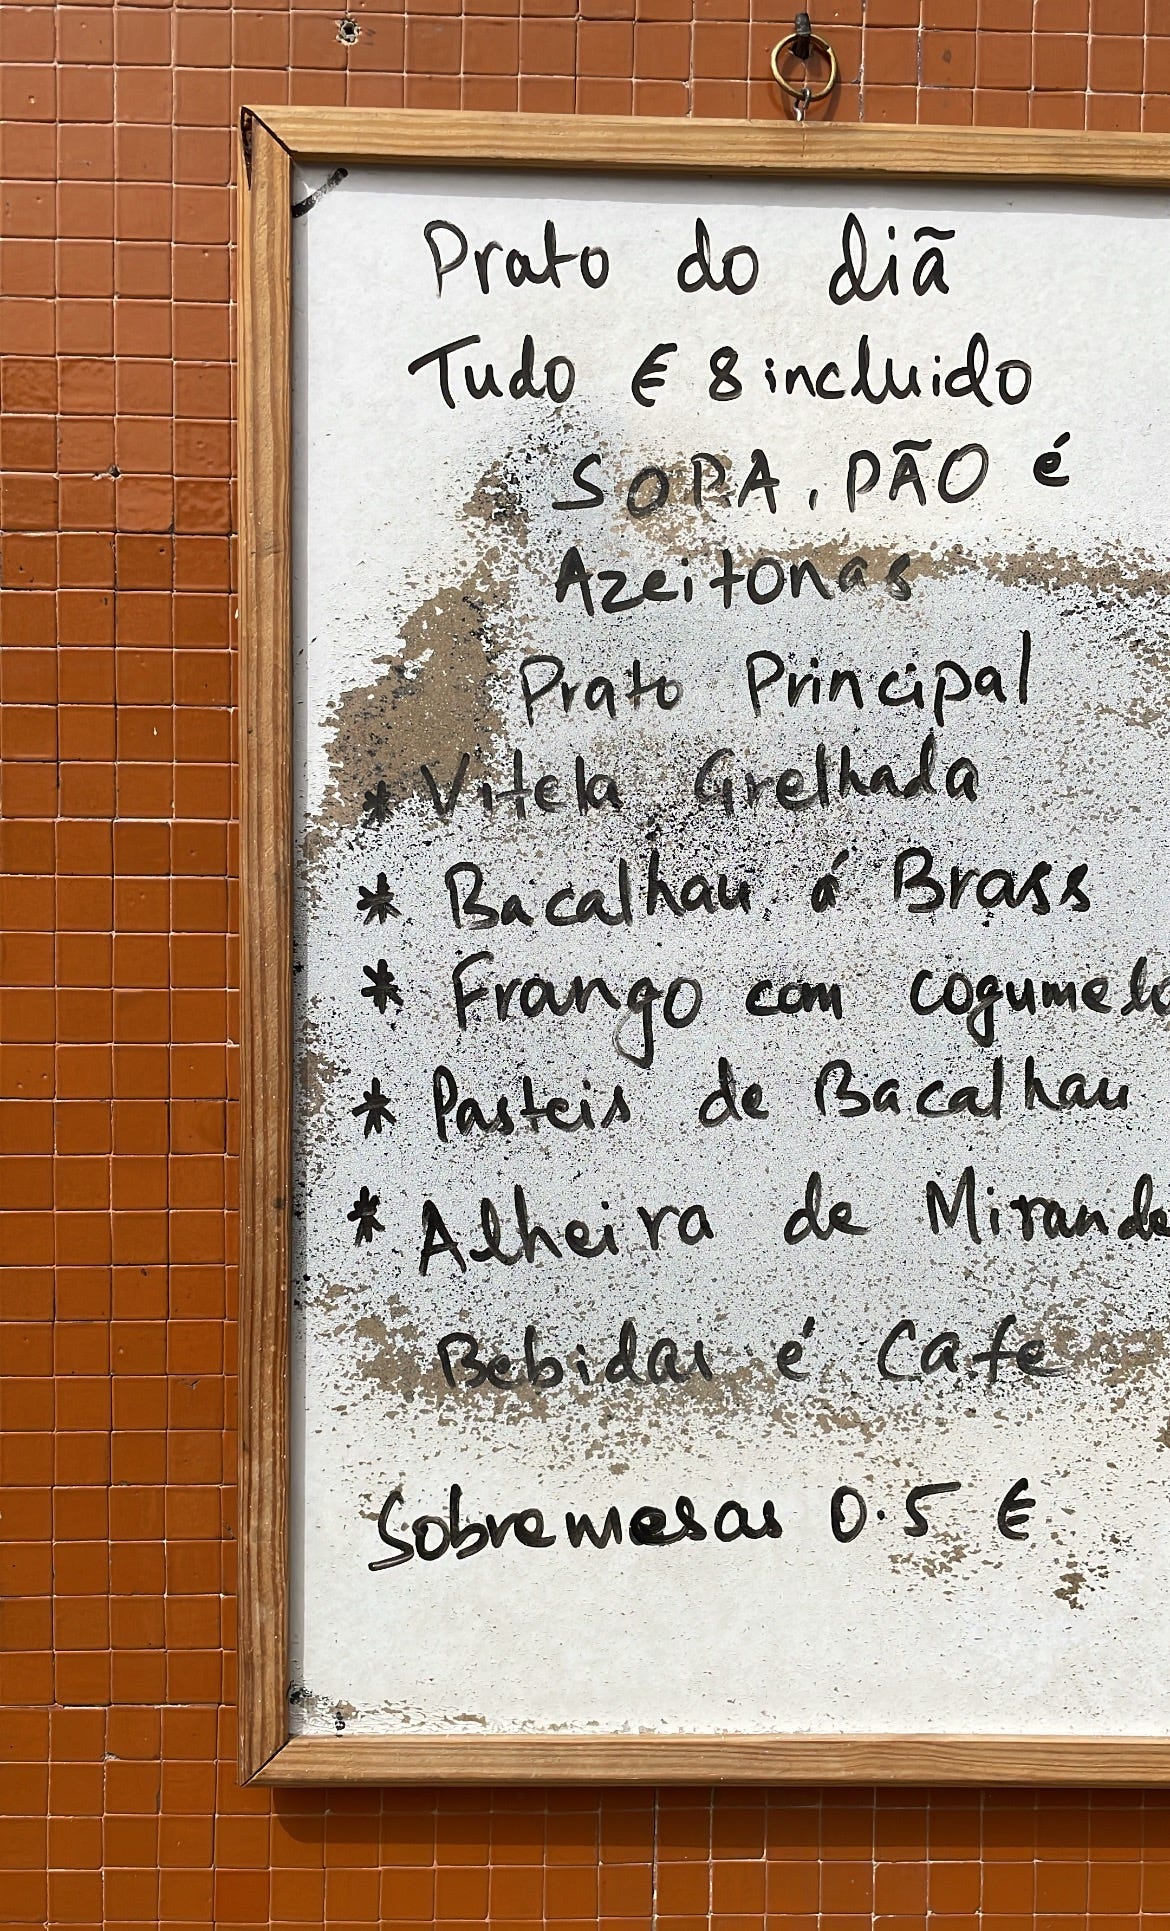 Prato do diã
Tudo € 8 incluido
SOPA, PÃO é
Azeitonas
Prato Principal
* Vitela Grelhada
* Bacalhau á Brass
* Frango com cogumelo
* Pasteis de Bacalhau
* Alheira de Mirande
Bebidas é Cafe
Sobremesas 0.5 €